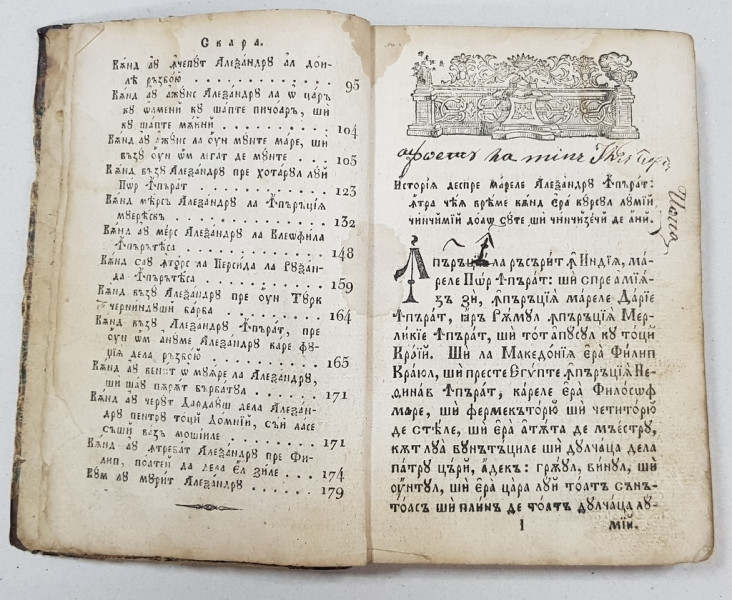 Скара.
Кѫнд аꙋ ꙟчепꙋт Алеѯандрꙋ ал дои-
лѣ рѫзбою . . . . . . . . . . 95
Кѫнд аꙋ ажꙋнс Алеѯандрꙋ ла ѡ царъ
кꙋ ѡамени кꙋ шапте пичоаре, ши
кꙋ шапте мѫйни . . . . . . . . 104
Кѫнд аꙋ ажꙋнс ла оун мꙋнте маре, ши
възꙋ оун ѡм лігат де мꙋнте . . 105
Кѫнд възꙋ Алеѯандрꙋ пре хотарꙋл лꙋй
Пѡр Ꙟпърат . . . . . . . . . . 123
Кѫнд мерсъ Алеѯандрꙋ ла Ꙟпъръція
мꙋерѣскъ . . . . . . . . . . . 132
Кѫнд аꙋ мерс Алеѯандрꙋ ла Клеѡфила
Ꙟпърътѣса . . . . . . . . . . . 148
Кѫнд саꙋ ꙟторс ла Персида ла Рꙋѯан-
да Ꙟпърътѣса . . . . . . . . . 159
Кѫнд възꙋ Алеѯандрꙋ пре оун Тꙋрк
черниндꙋши барба . . . . . . . 164
Кѫнд възꙋ Алеѯандрꙋ Ꙟпърат, пре
оун ѡм анꙋме Алеѯандрꙋ каре фꙋ-
ція дела ръзбою . . . . . . . . 165
Кѫнд аꙋ венит ѡ мꙋяре ла Алеѯандрꙋ,
ши шаꙋ пѫрѫт бърбатꙋл . . . . 171
Кѫнд аꙋ черꙋт Дардаꙋш дела Алеѯан-
дрꙋ пентрꙋ тоци Домній, съй ласе
съши вазъ мошіиле . . . . . . . 171
Кѫнд аꙋ ꙟтребат Алеѯандрꙋ пре Фи-
лип, поатей да дела Ел зиле . . . 174
Кꙋм аꙋ мꙋрит Алеѯандрꙋ . . . . . 179
Исторія деспре мареле Алеѯандрꙋ Ꙟпърат:
ꙟтра чѣя врѣме кѫнд ера кꙋрсꙋл лꙋмій,
чинчмій доаѡ сꙋте ши чинчизечй де аний.
Ꙟпъръціа ла ръсърит ꙟ Индіѧ, ма-
реле Пѡр Ꙟпърат: ши спре аміѧ-
зъ зи, ꙟпъръція мареле Даріе
Ꙟпърат, іар Рѫмꙋл ꙟпъръція Мер-
ликіе Ꙟпърат, ши тот апꙋсꙋл кꙋ тоцй
Краій. Ши ла Македонія ера Филип
Краюл, ши престе Єгупте ꙟпъръція Не-
финав Ꙟпърат, кареле ера Філосѡф
маре, ши фермекъторю ши четиторю
де стѣле, ши ера атѫта де мъестрꙋ,
кѫт лꙋа бꙋнътъциле ши дꙋлчаца дела
патрꙋ църй, адекъ: грѫꙋл, винꙋл, ши
оунтꙋл, ши ера цара лꙋй тоатъ сънъ-
тоасъ ши плинъ де тоатъ дꙋлчаца лꙋ-
1 мій.